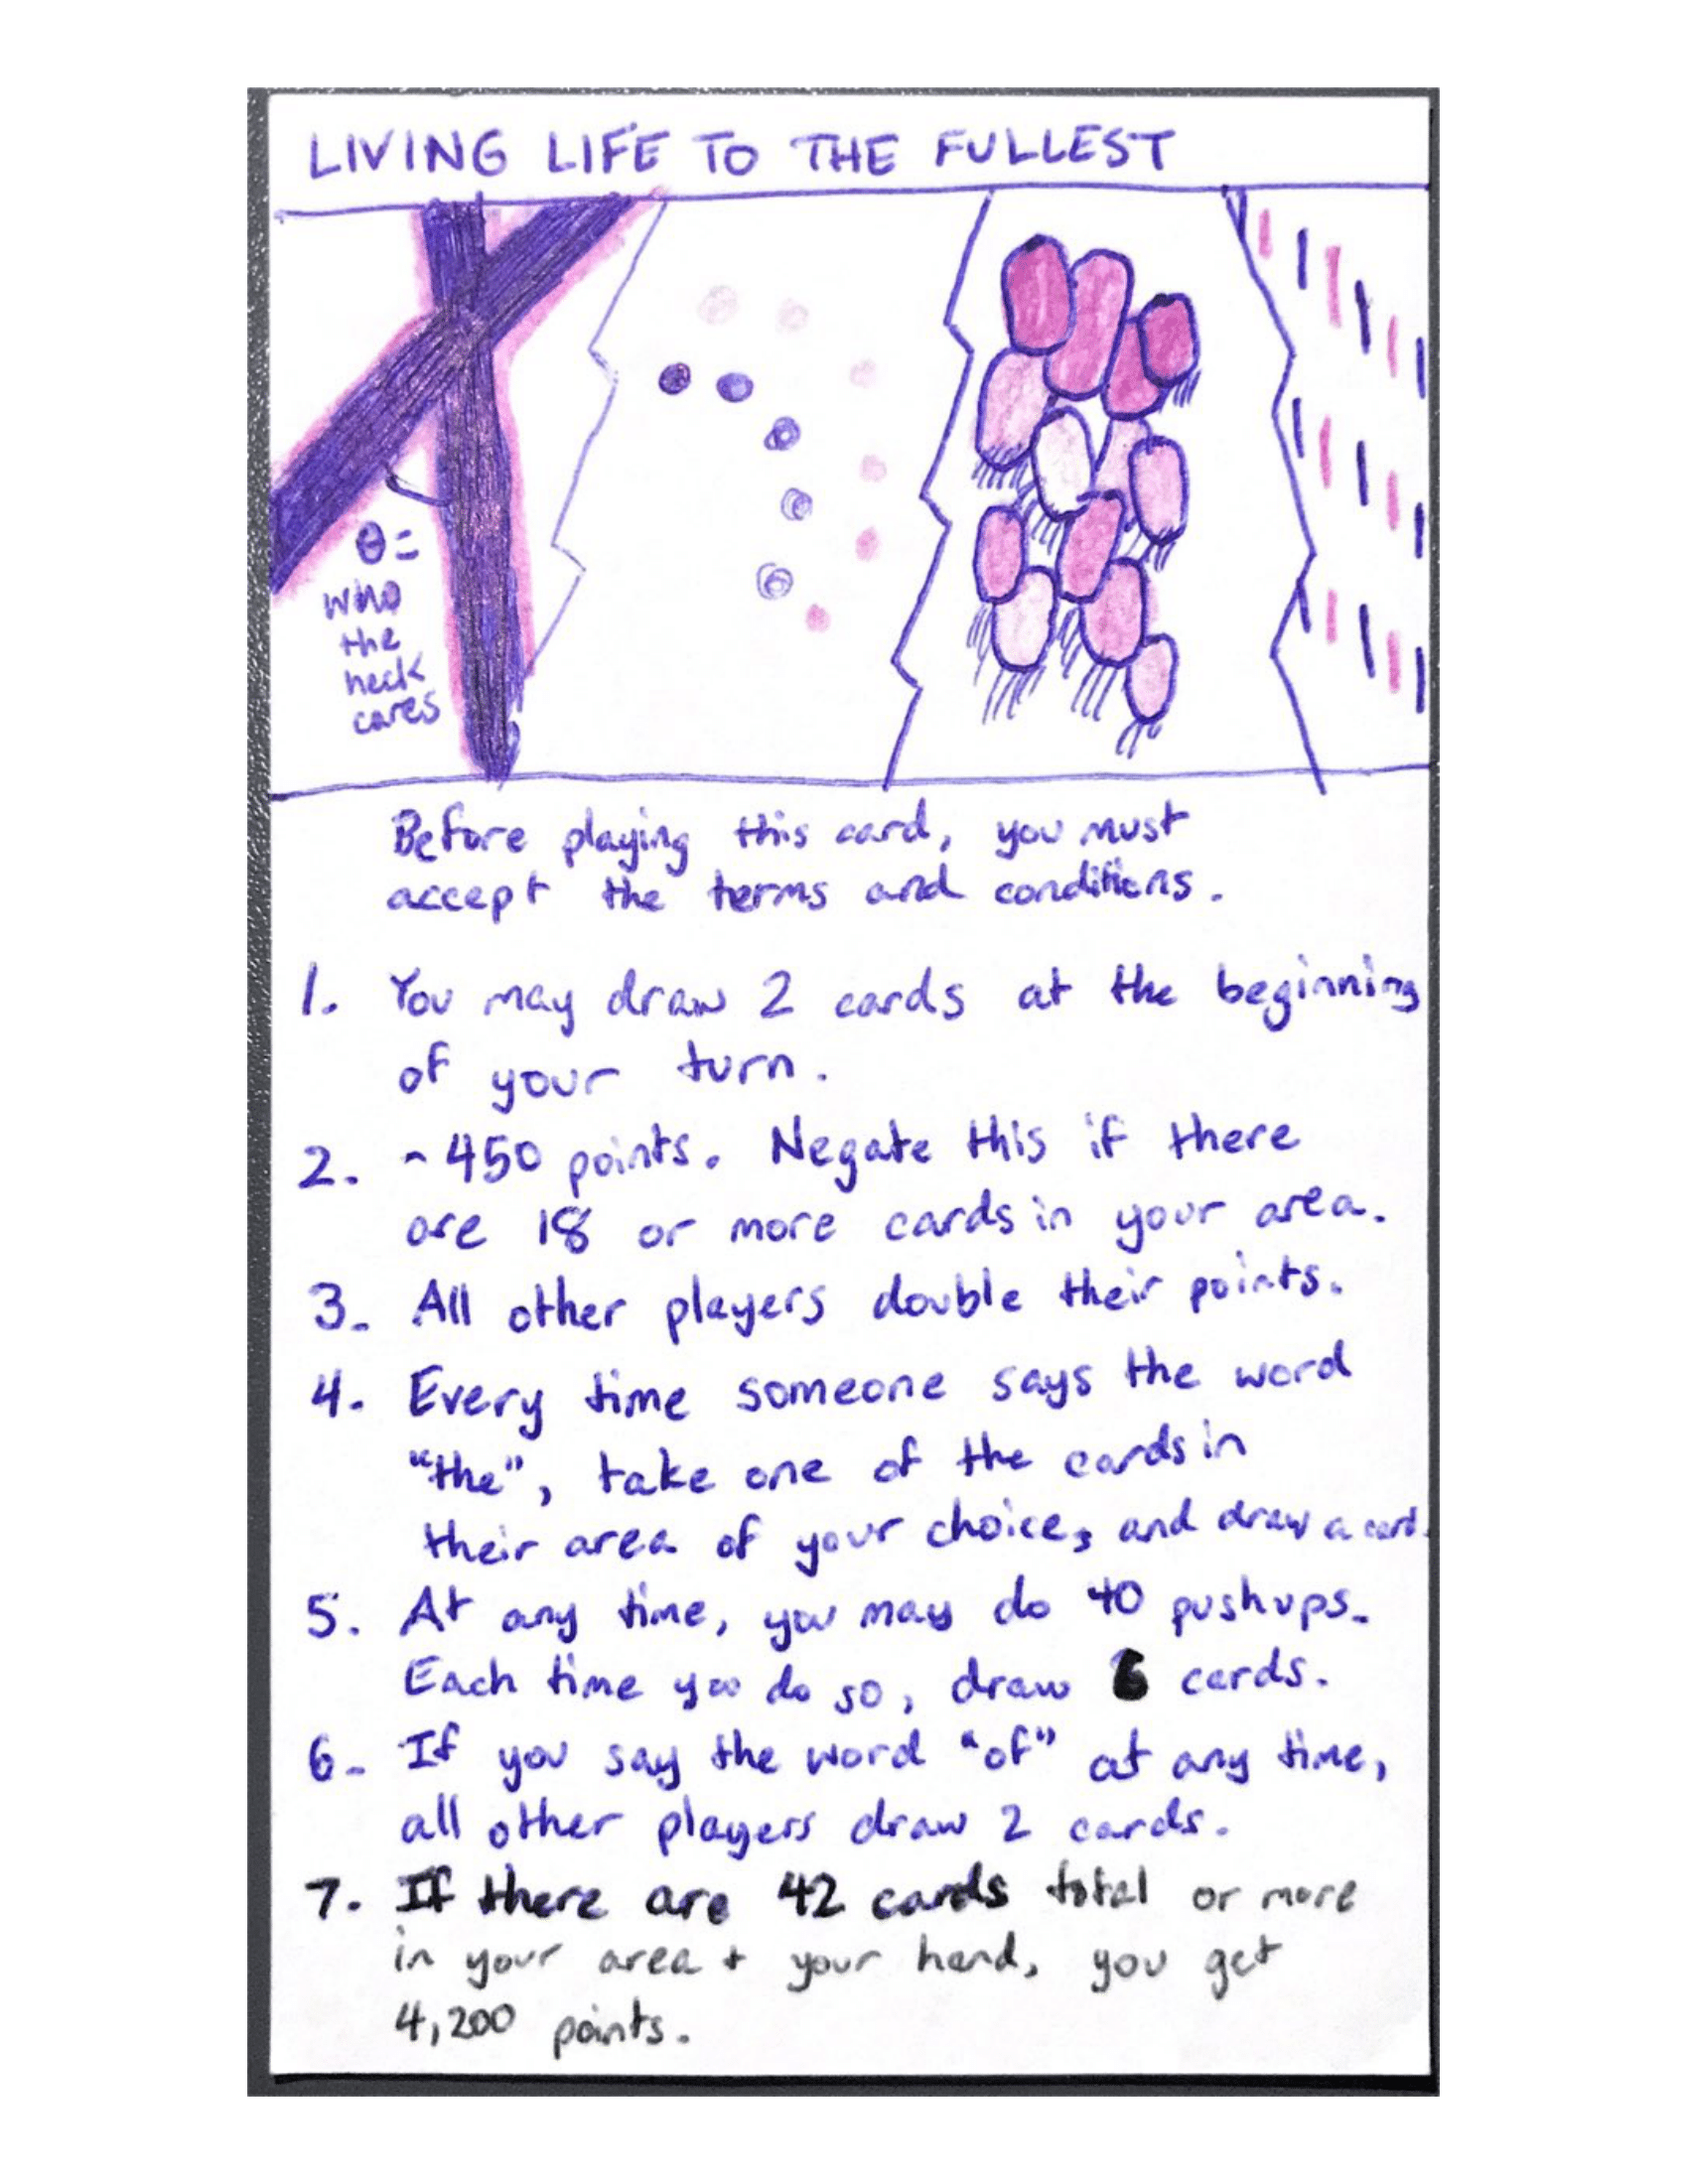 LIVING LIFE TO THE FULLEST
θ =
who
the
heck
cares
Before playing this card, you must
accept the terms and conditions.
1. You may draw 2 cards at the beginning
of your turn.
2. -450 points. Negate this if there
are 18 or more cards in your area.
3. All other players double their points.
4. Every time someone says the word
"the", take one of the cards in
their area of your choice, and draw a card.
5. At any time, you may do 40 pushups.
Each time you do so, draw 6 cards.
6. If you say the word "of" at any time,
all other players draw 2 cards.
7. If there are 42 cards total or more
in your area + your hand, you get
4,200 points.